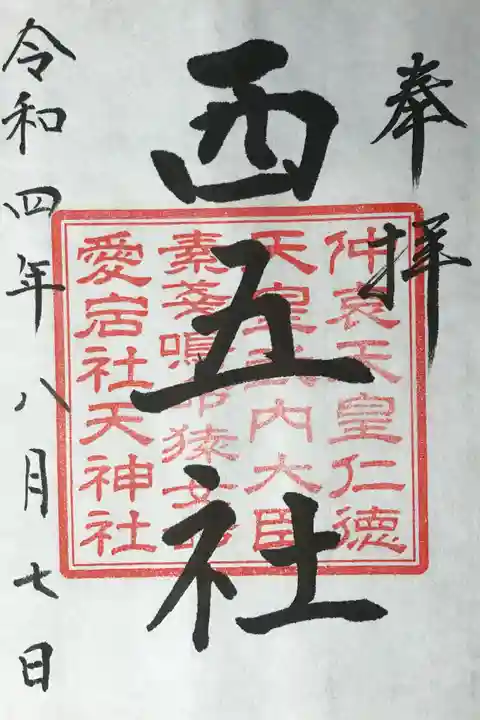 奉拝
西五社
仲哀天皇仁徳
天皇武内大臣
素盞鳴命猿女命
愛宕社天神社
令和四年八月七日